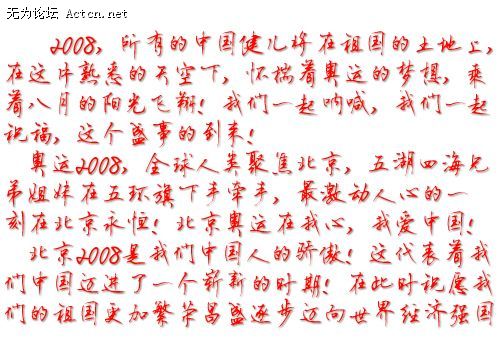 无为论坛 Actcn.net
2008，所有的中国健儿将在祖国的土地上，
在这片熟悉的天空下，怀揣着奥运的梦想，乘
着八月的阳光飞翔！我们一起呐喊，我们一起
祝福，这个盛事的到来！
奥运2008，全球人类聚焦北京，五湖四海兄
弟姐妹在五环旗下手牵手，最激动人心的一
刻在北京永恒！北京奥运在我心，我爱中国！
北京2008是我们中国人的骄傲！这代表着我
们中国迈进了一个崭新的时期！在此时祝愿我
们的祖国更加繁荣昌盛逐步迈向世界经济强国